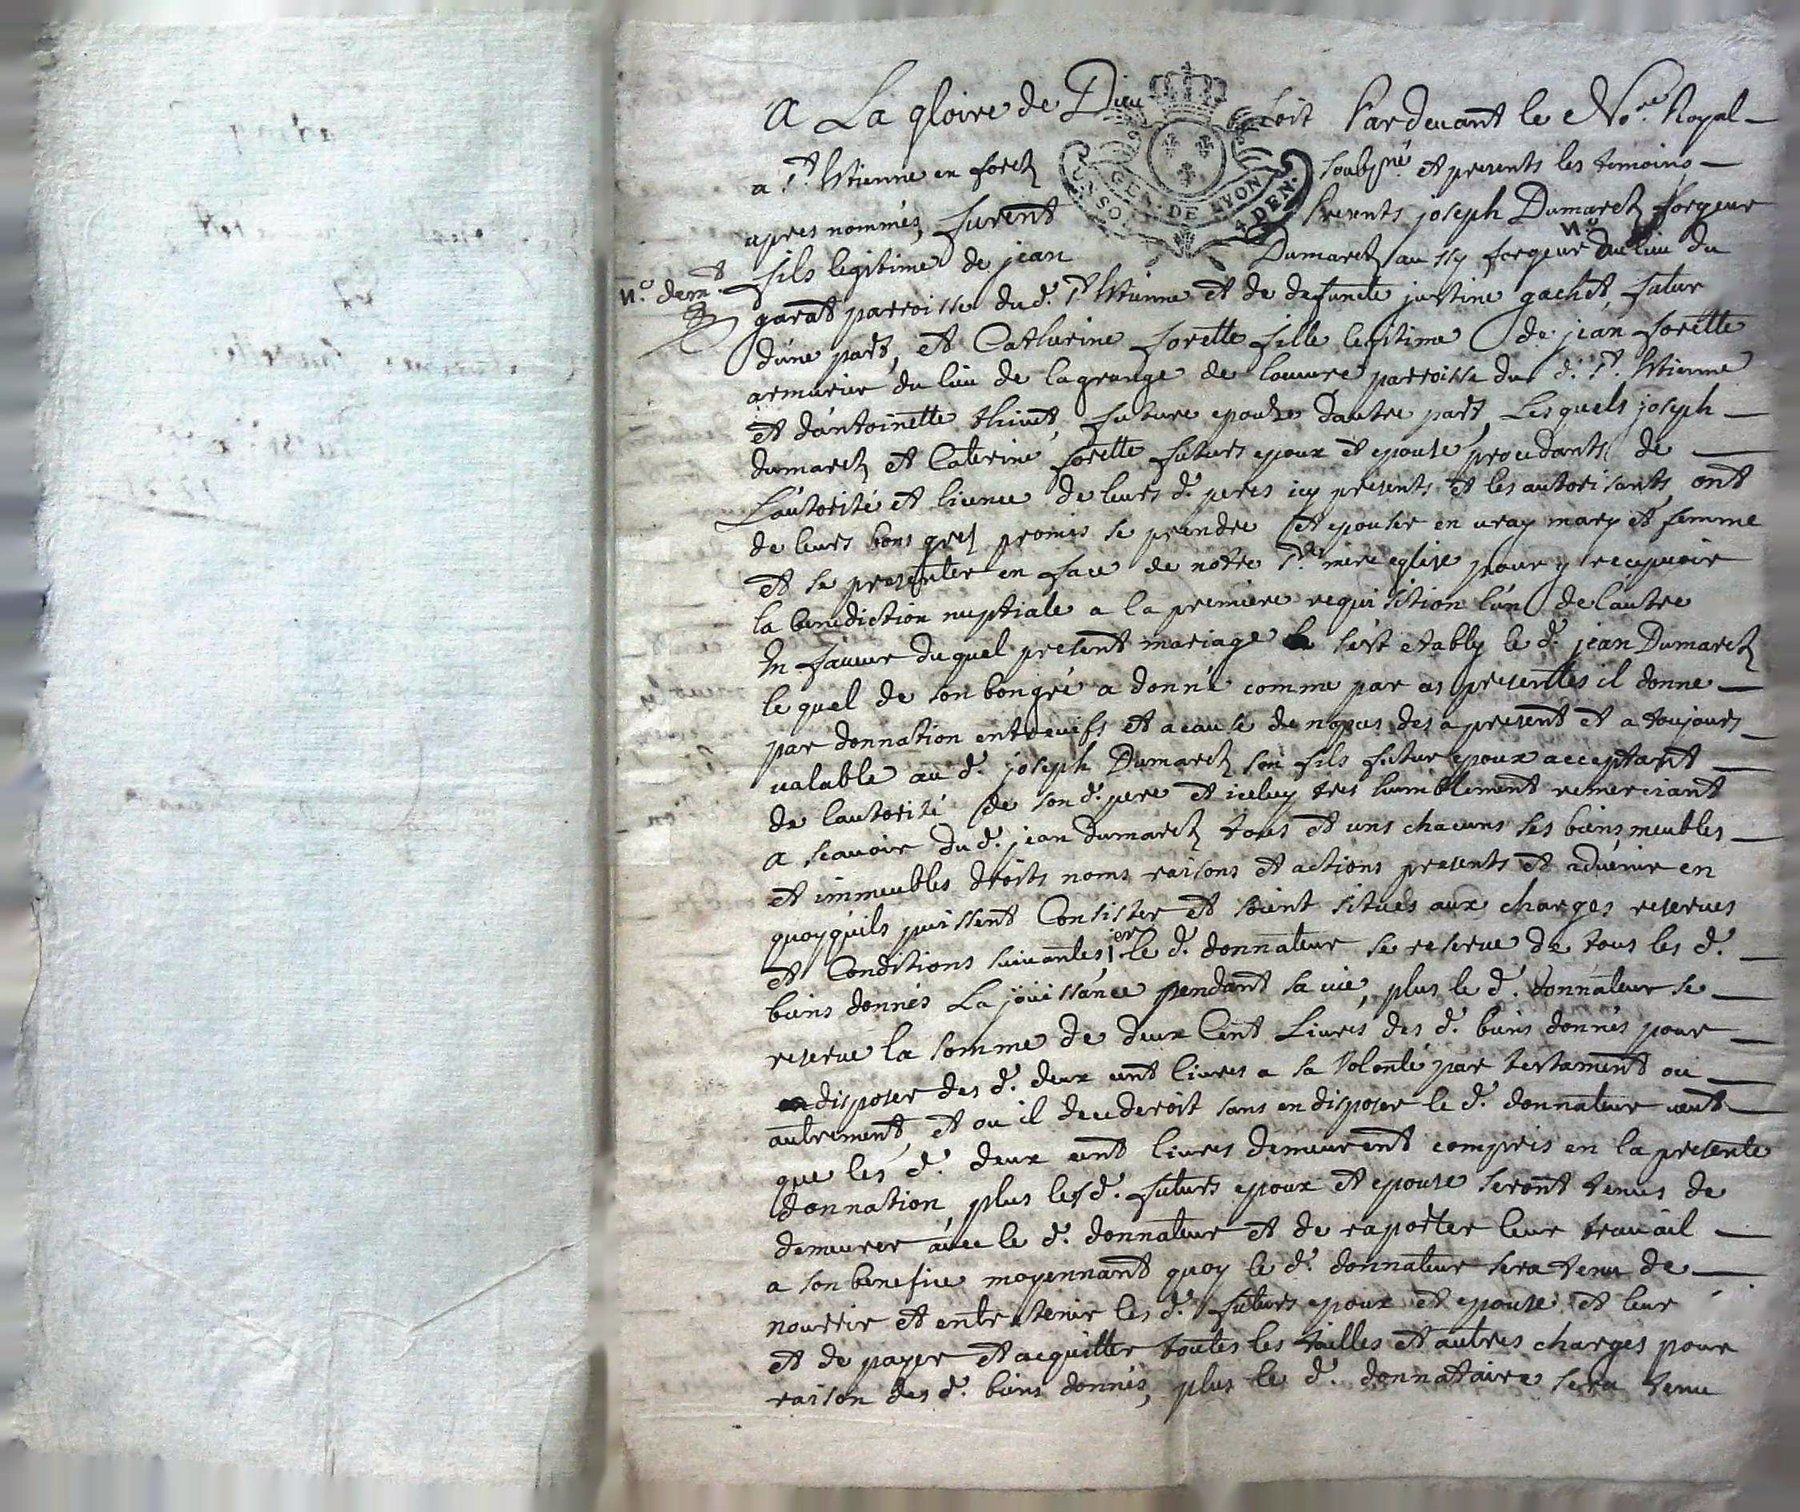 A La gloire de Dieu soit Pardevant le No.re Royal
a St. Etienne en forez soubsné et presents les temoins
apres nommés, furent presents joseph Dumarez forgeur
fils legitime de jean Dumarez aussy forgeur du lieu du
N.o dem.t
garat parroisse du d. St. Etienne et de defuncte justine gachet, futur
GEN. DE LYON
UN SOL 4 DEN.
dune part, et Catherine forette fille legitime de jean forette
armurier du lieu de lagrange de loeuvre parroisse du d. St. Etienne
et dantoinette thivet, future epouze dautre part, Lesquels joseph
dumarez et Caterine forette futurs epoux et epouse procedants de
L'autorité et licence de leurs d. peres icy presents et les autorisants, ont
de leurs bons grez promis se prendre et epouser en vray mary et femme
et se presenter en face de notre Ste. mere eglise pour y recepvoir
la benediction nuptiale a la premiere requisition l'un de lautre
En faveur duquel present mariage s'est etably le d. jean Dumarez
lequel de son bongré a donné comme par ces presentes il donne
par donnation entrevifs et a cause de nopces des a present et a toujours
valable au d. joseph Dumarez son fils futur epoux acceptant
de lautorité de son d. pere et iceluy tres humblement remerciant
a scavoir du d. jean Dumarez tous et uns chacuns ses biens meubles
et immeubles droits noms raisons et actions presents et advenir en
quoyquils puissent Consister et soient situés aux charges reserves
et Conditions suivantes 1er le d. donnateur se reserve de tous les d.
biens donnés La jouissance pendant sa vie, plus le d. donnateur se
reserve la somme de deux Cent Livres des d. biens donnés pour
disposer des d. deux cent livres a sa volonté par testament ou
autrement, et ou il decederoit sans en disposer le d. donnateur veut
que les d. deux cent livres demeurent compris en la presente
donnation, plus les d. futurs epoux et epouse seront tenus de
demeurer avec le d. donnateur et de raporter leur travail
a son benefice moyennant quoy le d. donnateur sera tenu de
nourrir et entretenir les d. futurs epoux et epouse et leur
et de payer et acquitter toutes les tailles et autres charges pour
raison des d. biens donnés, plus le d. donnataire sera tenu